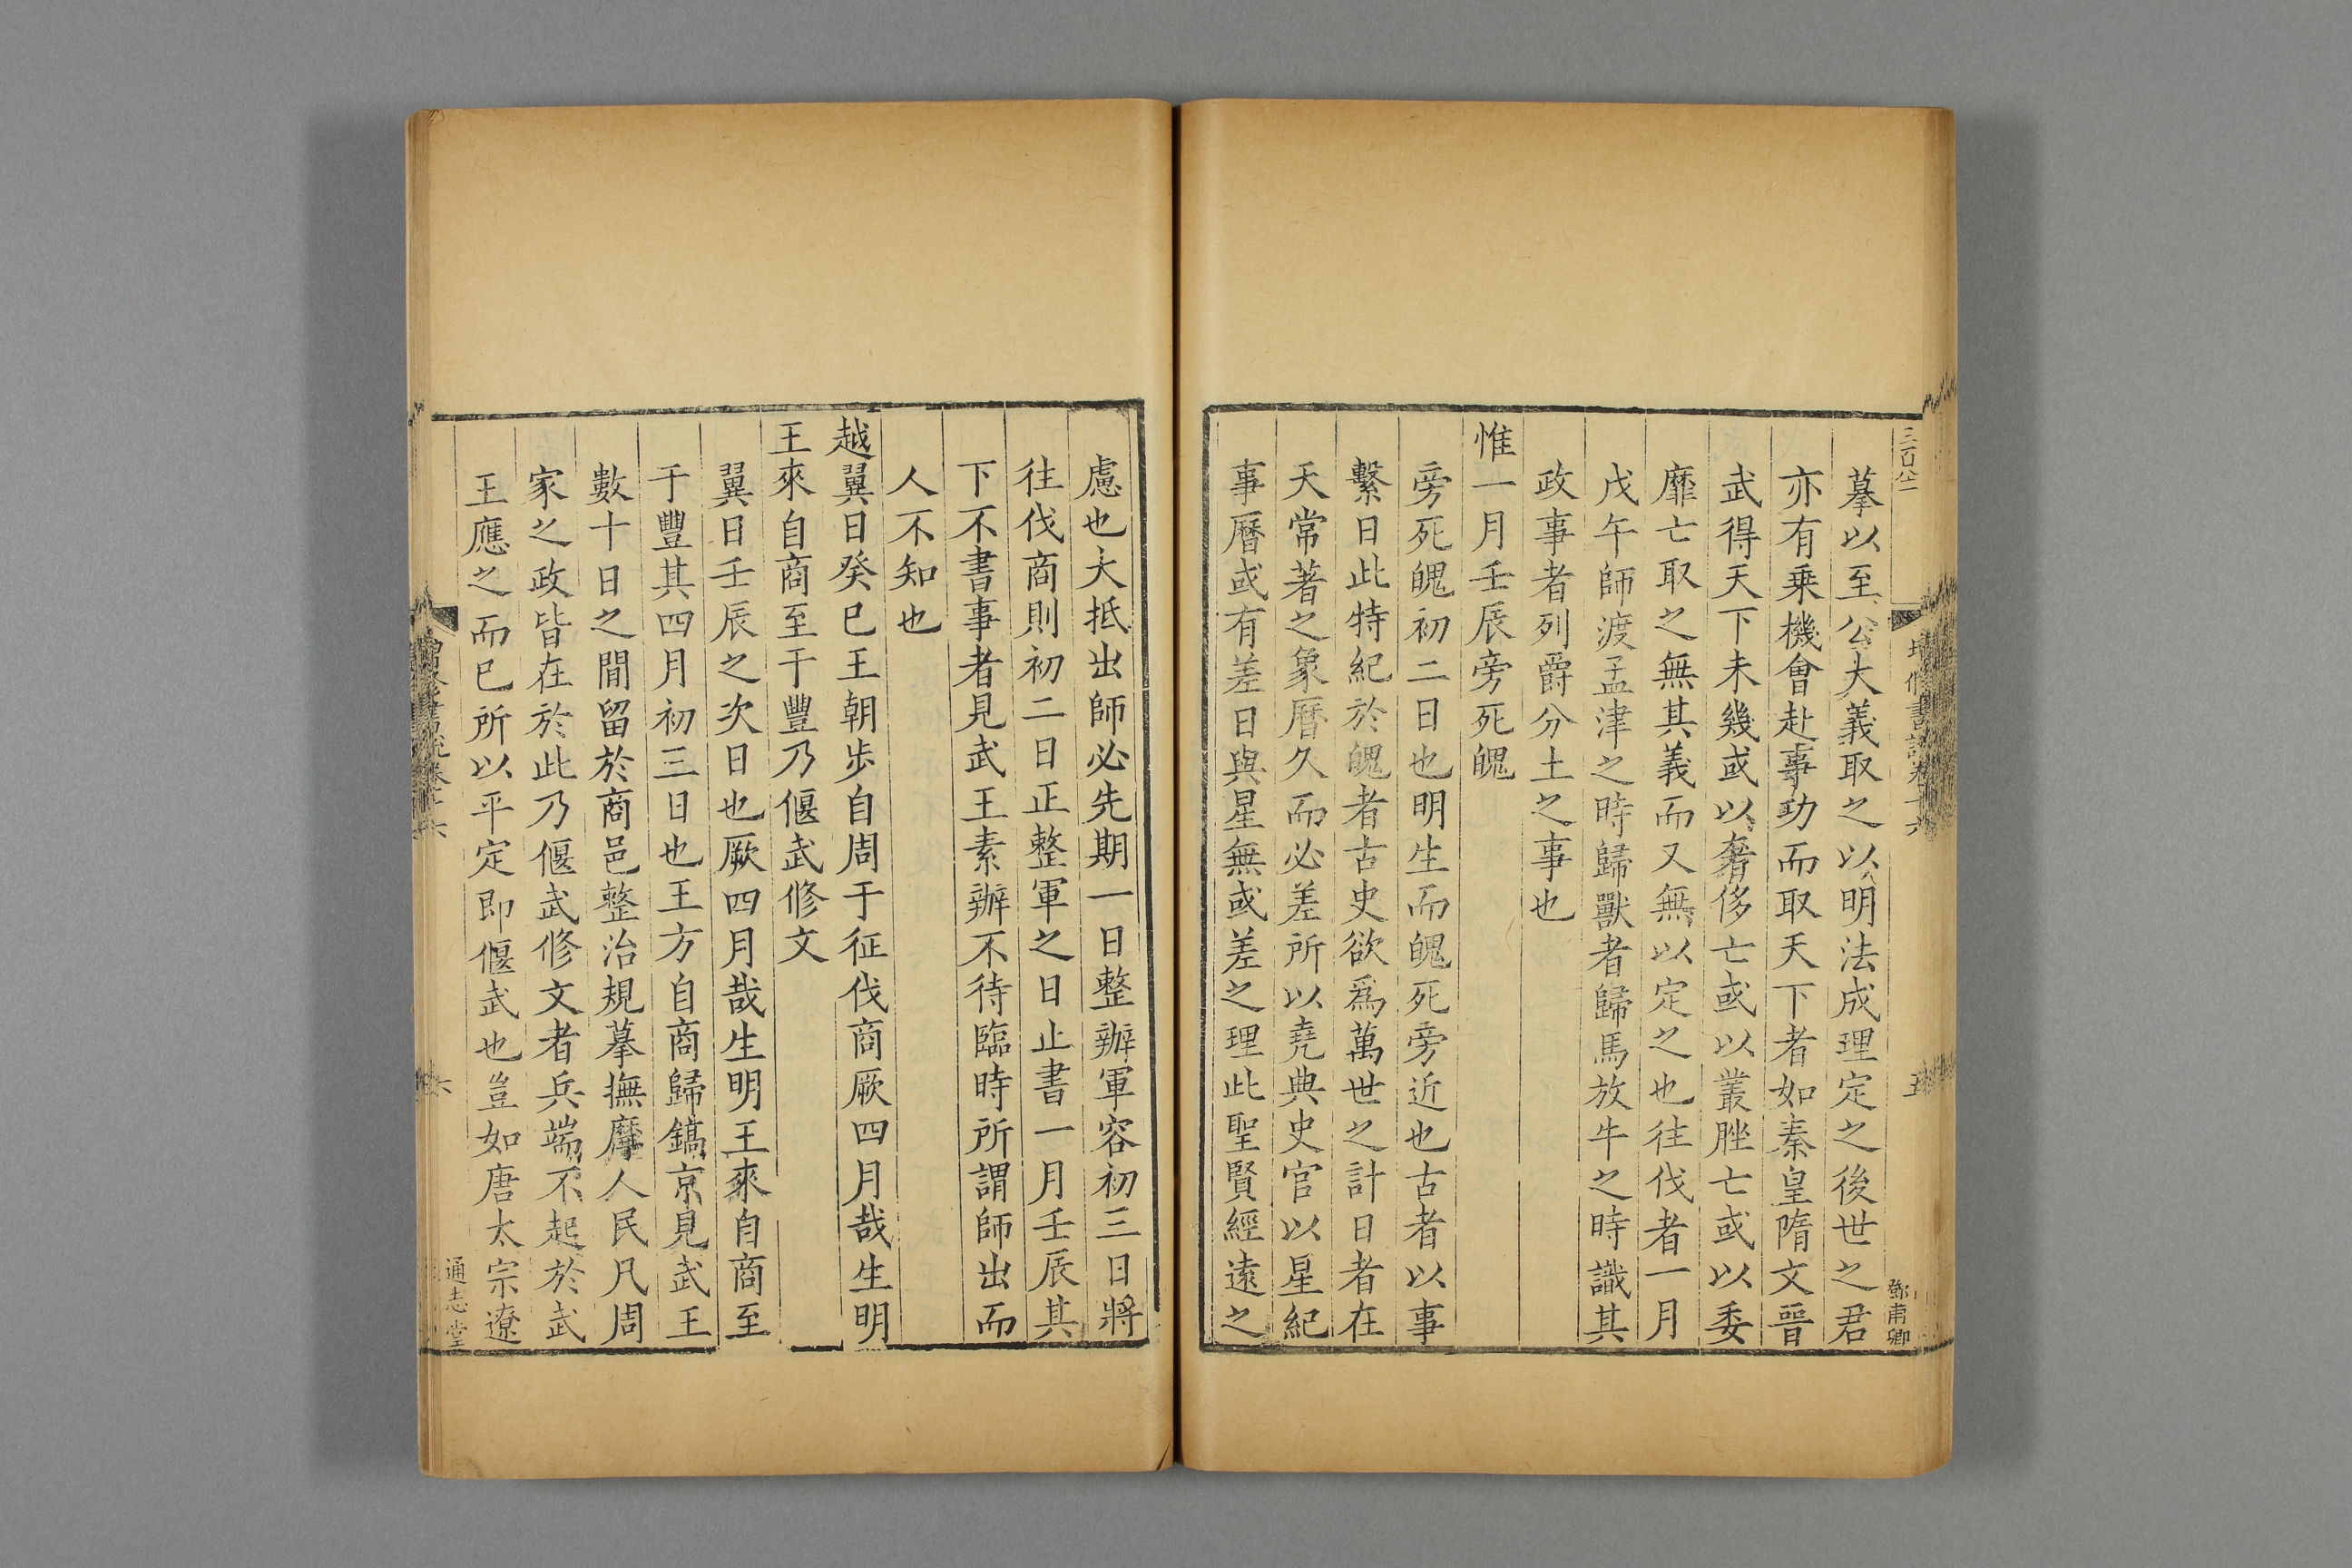 三百八二
增修書說卷十六
五
鄧甫卿
摹以至公大義取之以明法成理定之後世之君
亦有乗機會赴事功而取天下者如秦皇隋文晉
武得天下未幾或以奢侈亡或以叢脞亡或以委
靡亡取之無其義而又無以定之也往伐者一月
戊午師渡孟津之時歸獸者歸馬放牛之時識其
政事者列爵分土之事也
惟一月壬辰旁死魄
旁死魄初二日也明生而魄死旁近也古者以事
繫日此特紀於魄者古史欲爲萬世之計日者在
天常著之象曆久而必差所以堯典史官以星紀
事曆或有差日與星無或差之理此聖賢經遠之
慮也大抵出師必先期一日整辦軍容初三日將
往伐商則初二日正整軍之日止書一月壬辰其
下不書事者見武王素辦不待臨時所謂師出而
人不知也
越翼日癸巳王朝步自周于征伐商厥四月哉生明
王來自商至于豐乃偃武修文
翼日壬辰之次日也厥四月哉生明王來自商至
于豐其四月初三日也王方自商歸鎬京見武王
數十日之間留於商邑整治規摹撫摩人民凡周
家之政皆在於此乃偃武修文者兵端不起於武
王應之而已所以平定即偃武也豈如唐太宗遼
六
通志堂